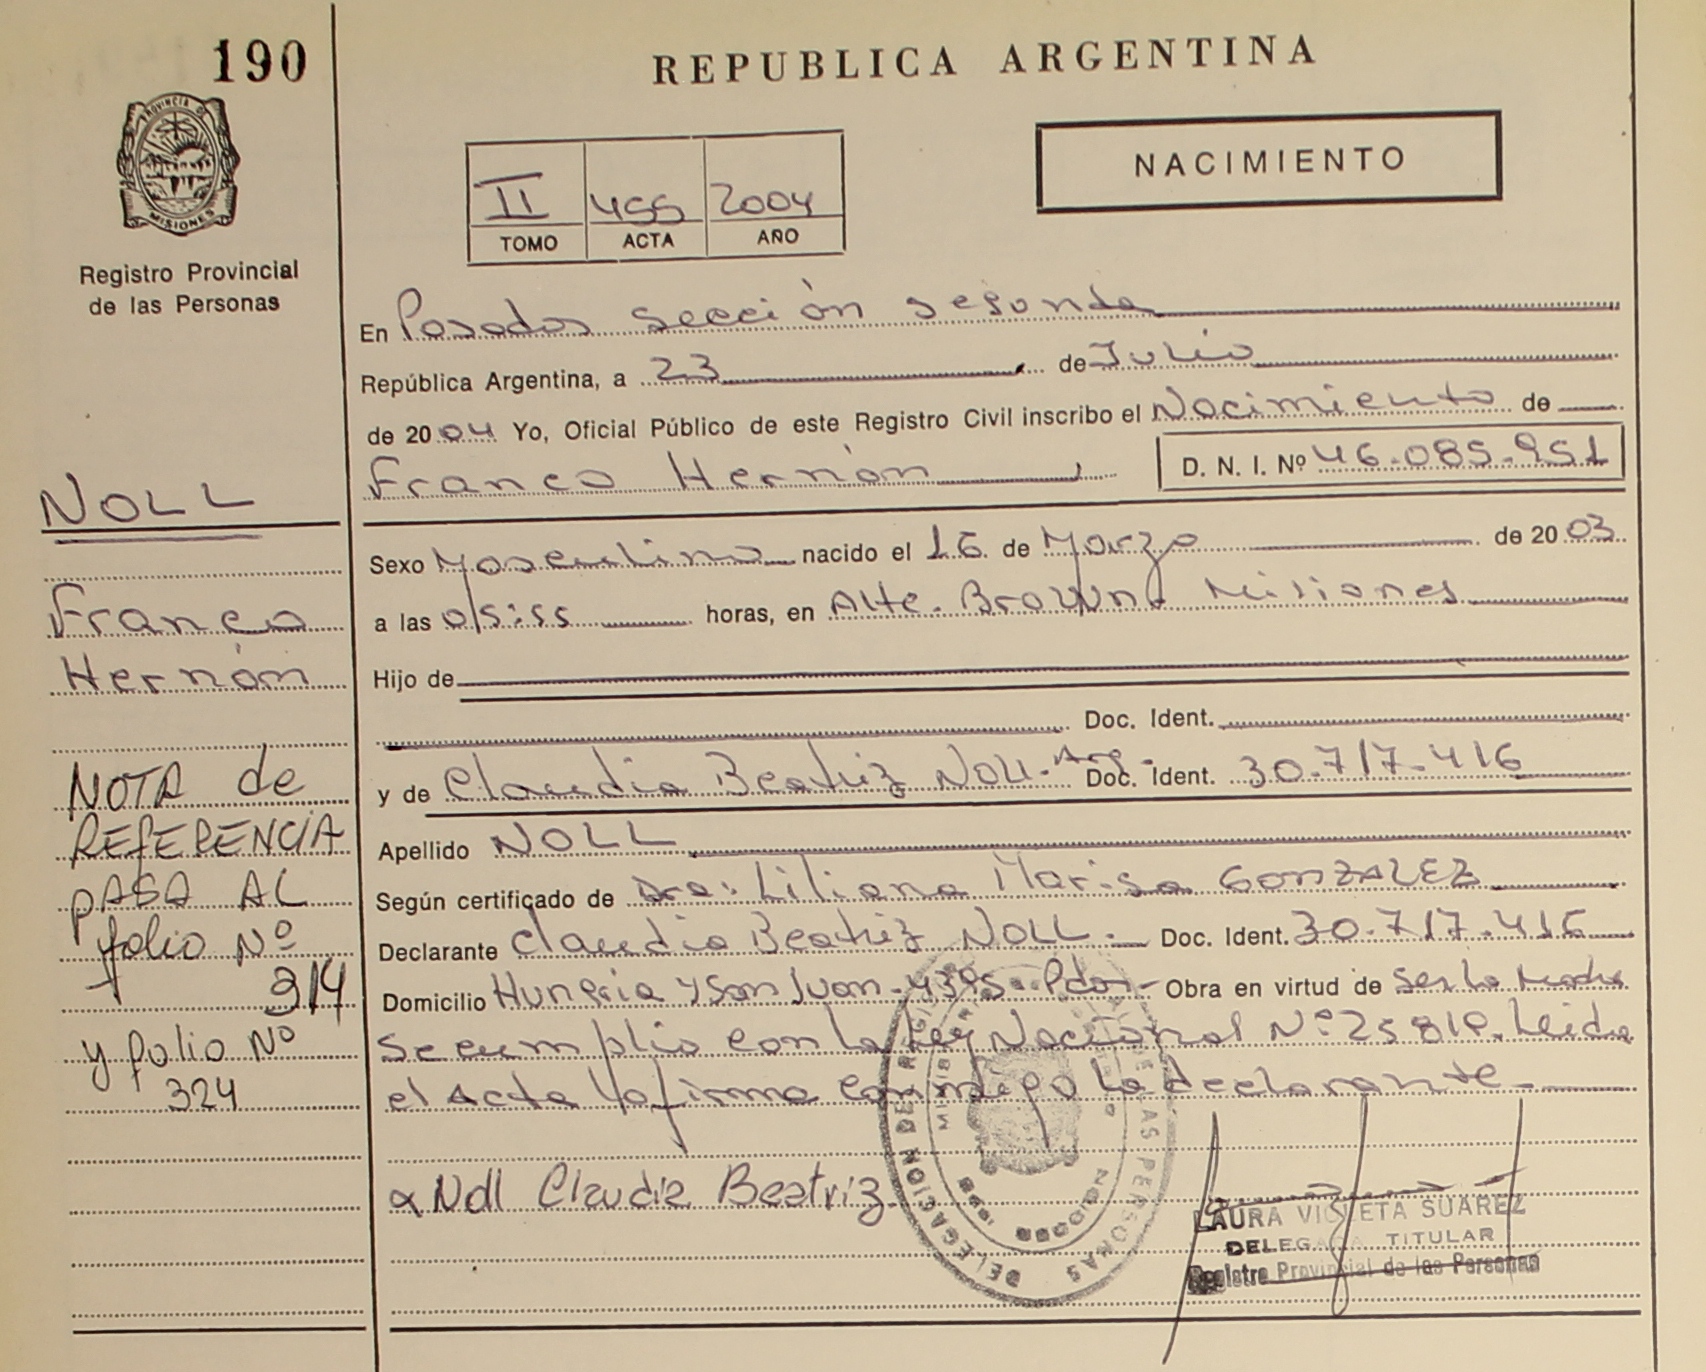 190
REPUBLICA ARGENTINA
PROVINCIA DE
MISIONES
Registro Provincial
de las Personas
NACIMIENTO
II 455 2004
TOMO ACTA AÑO
En Posadas sección segunda
República Argentina, a 23 de Julio
de 2004 Yo, Oficial Público de este Registro Civil inscribo el Nacimiento de
Franco Hernán D. N. I. Nº 46.085.951
Sexo Masculino nacido el 16 de Marzo de 2003
a las 05:55 horas, en Alte. Brown Misiones
Hijo de
Doc. Ident.
y de Claudia Beatriz NOLL - Arg. - Doc. Ident. 30.717.416
Apellido NOLL
Según certificado de Dra: Liliana Marisa GONZALEZ
Declarante Claudia Beatriz NOLL.- Doc. Ident. 30.717.416
Domicilio Hungria y San Juan - Pdas - Obra en virtud de ser la Madre
se cumplio con la Ley Nacional Nº 25819. Leida
el Acta la firma conmigo la declarante
Noll Claudia Beatriz
NOLL
Franco
Hernán
NOTA de
REFERENCIA
PASA AL
folio Nº
314
y folio Nº
324
DELEGACION DE REGISTRO DE LAS PERSONAS
LAURA VIOLETA SUAREZ
DELEGADA TITULAR
Registro Provincial de las Personas